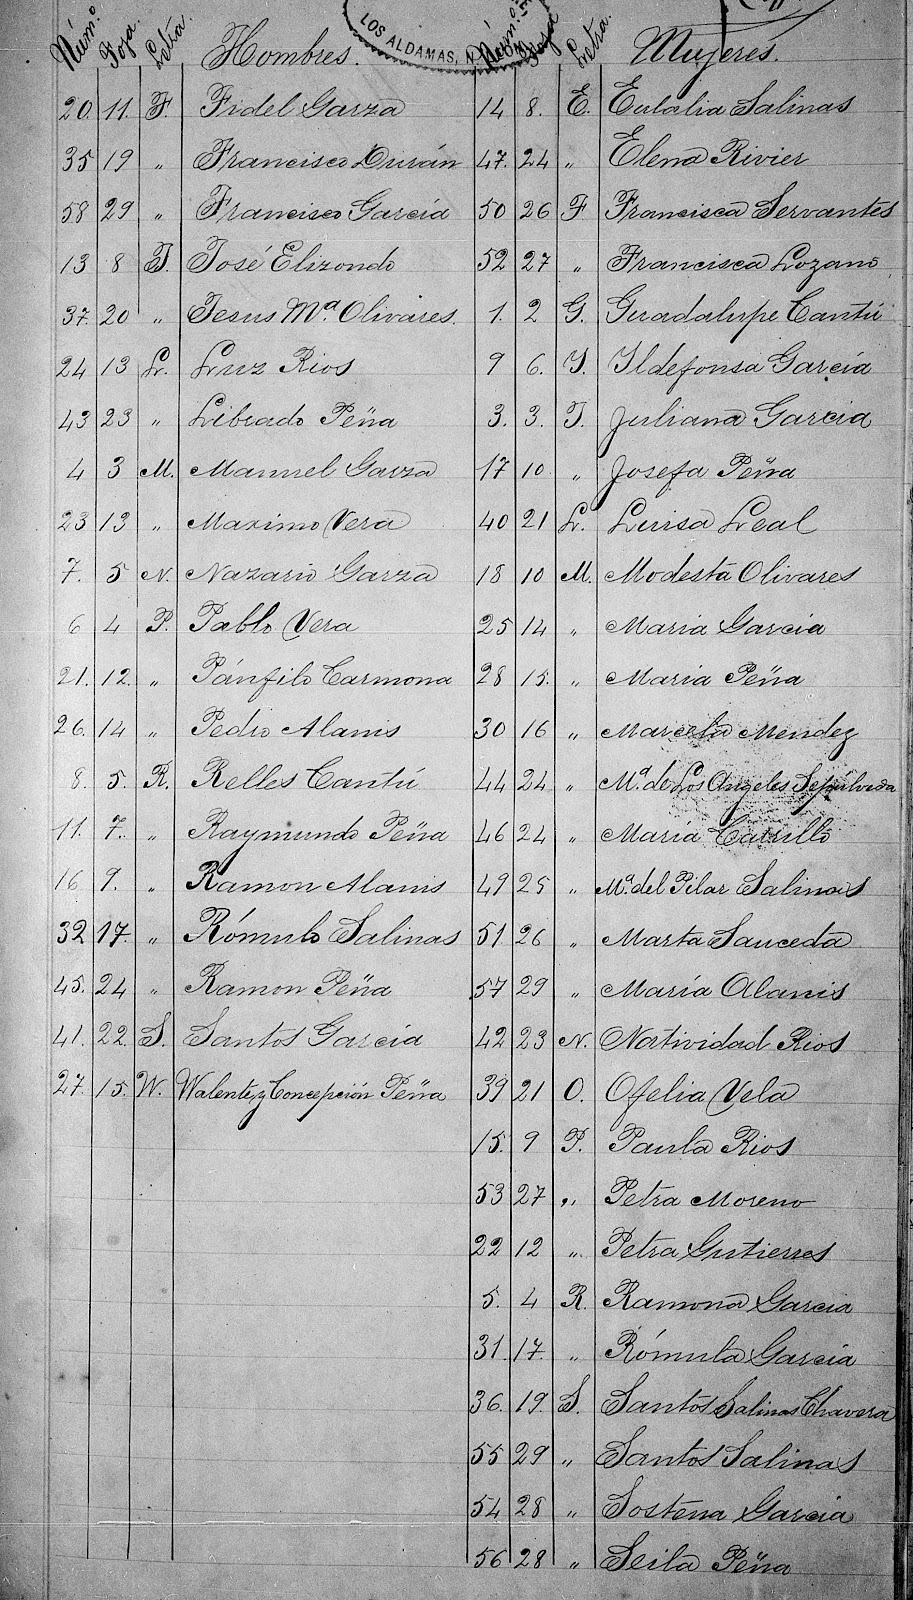 LOS ALDAMAS, N
Núm.º Foja. Letra. Hombres. Núm.º Foja Letra. Mujeres.
20. 11. F. Fidel Garza 14 8. E. Eulalia Salinas
35 19 „ Francisco Durán 47. 24 „ Elena Rivier
58 29 „ Francisco García 50 26 F Francisca Servantes
13 8 J. José Elizondo 52 27 „ Francisca Lozano
37. 20 „ Jesus Mª Olivares. 1. 2 G. Guadalupe Cantú
24 13 L. Luz Rios 9 6. I. Ildefonsa García
43 23 „ Librado Peña 3. 3. J. Juliana Garcia
4 3 M. Manuel Garza 17 10 „ Josefa Peña
23 13 „ Maximo Vera 40 21 L. Luisa Leal
7. 5 N. Nazario Garza 18 10 M. Modesta Olivares
6 4 P. Pablo Vera 25 14 „ Maria Garcia
21. 12. „ Pánfilo Carmona 28 15. „ Maria Peña
26. 14 „ Pedro Alanis 30 16 „ Marcela Mendez
8. 5. R. Relles Cantú 44 24 „ Mª. de Los Angeles Sepúlveda
11. 7. „ Raymundo Peña 46 24 „ María Carrillo
16 9. „ Ramon Alanis 49 25 „ Mª. del Pilar Salinas
32 17. „ Rómulo Salinas 51 26 „ Marta Sauceda
45. 24 „ Ramon Peña 57 29 „ María Alanis
41. 22. S. Santos García 42 23 N. Natividad Rios
27. 15. W. Walente, y Concepción Peña 39 21 O. Ofelia Vela
15. 9 P. Paula Rios
53 27 „ Petra Moreno
22 12 „ Petra Gutierres
5. 4 R. Ramona Garcia
31. 17. „ Rómula Garcia
36. 19. S. Santos Salinas Chavera
55 29 „ Santos Salinas
54 28 „ Sostena Garcia
56 28 „ Seila Peña